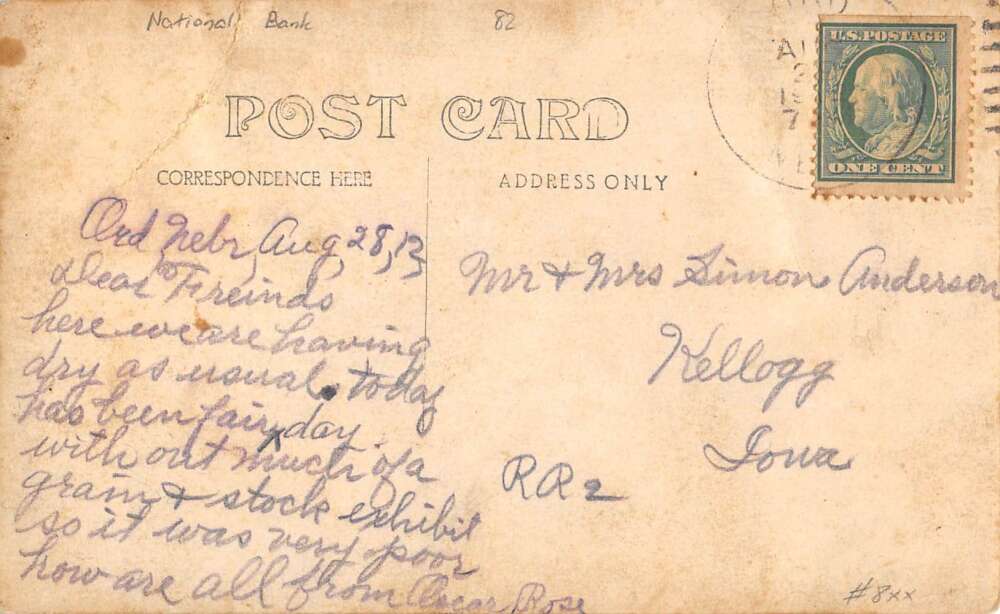 National Bank
82
U.S. POSTAGE
ONE CENT
POST CARD
CORRESPONDENCE HERE
ADDRESS ONLY
Ord Nebr, Aug, 28, 13,
Dear Freinds
here we are having
dry as usual. today
has been fair day
with out much of a
grain & stock exhibit
so it was very poor
how are all from Oscar Rose
Mr & Mrs Simon Anderson
Kellogg
Iowa
RR 2
#8xx